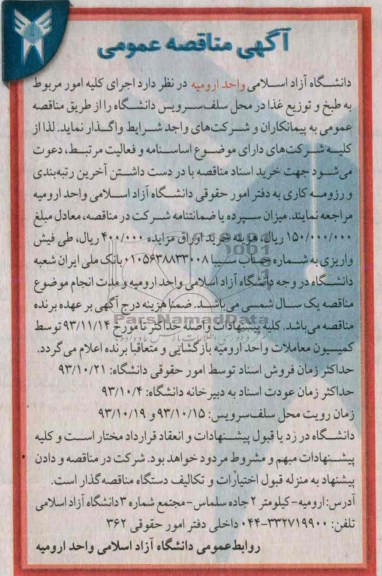 آگهی مناقصه عمومی
دانشگاه آزاد اسلامی واحد ارومیه در نظر دارد اجرای کلیه امور مربوط
به طبخ و توزیع غذا در محل سلف‌سرویس دانشگاه را از طریق مناقصه
عمومی به پیمانکاران و شرکت‌های واجد شرایط واگذار نماید. لذا از
کلیه شرکت‌های دارای موضوع اساسنامه و فعالیت مرتبط، دعوت
می‌شود جهت خرید اسناد مناقصه با در دست داشتن آخرین رتبه‌بندی
و رزومه کاری به دفتر امور حقوقی دانشگاه آزاد اسلامی واحد ارومیه
مراجعه نمایند. میزان سپرده یا ضمانتنامه شرکت در مناقصه، معادل مبلغ
۱۵۰/۰۰۰/۰۰۰ ریال، هزینه خرید اوراق مزایده ۴۰۰/۰۰۰ ریال، طی فیش
واریزی به شماره حساب سیبا ۰۱۰۵۶۳۸۸۳۳۰۰۸ بانک ملی ایران شعبه
دانشگاه در وجه دانشگاه آزاد اسلامی واحد ارومیه و مدت انجام موضوع
مناقصه یک سال شمسی می‌باشد. ضمنا هزینه درج آگهی بر عهده برنده
مناقصه می‌باشد. کلیه پیشنهادات واصله حداکثر تا مورخ ۹۳/۱۱/۱۴ توسط
کمیسیون معاملات واحد ارومیه بازگشایی و متعاقبا برنده اعلام می‌گردد.
حداکثر زمان فروش اسناد توسط امور حقوقی دانشگاه: ۹۳/۱۰/۲۱
حداکثر زمان عودت اسناد به دبیرخانه دانشگاه: ۹۳/۱۰/۴
زمان رویت محل سلف‌سرویس: ۹۳/۱۰/۱۵ و ۹۳/۱۰/۱۹
دانشگاه در رد یا قبول پیشنهادات و انعقاد قرارداد مختار است و کلیه
پیشنهادات مبهم و مشروط مردود خواهد بود. شرکت در مناقصه و دادن
پیشنهاد به منزله قبول اختیارات و تکالیف دستگاه مناقصه‌گذار است.
آدرس: ارومیه-کیلومتر ۲ جاده سلماس-مجتمع شماره ۳ دانشگاه آزاد اسلامی
تلفن: ۳۳۲۷۱۹۹۰۰-۰۴۴ داخلی دفتر امور حقوقی ۳۶۲
روابط عمومی دانشگاه آزاد اسلامی واحد ارومیه
ParsNamadData